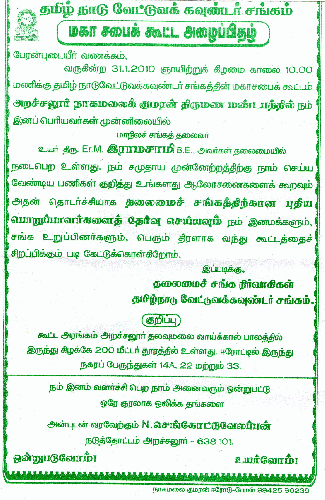 தமிழ் நாடு வேட்டுவக் கவுண்டர் சங்கம்
மகா சபைக் கூட்ட அழைப்பிதழ்
பேரன்புடையீர் வணக்கம்,
வருகின்ற 31.1.2010 ஞாயிற்றுக் கிழமை காலை 10.00
மணிக்கு தமிழ் நாடுவேட்டுவகவுண்டர் சங்கத்தின் மகாசபைக் கூட்டம்
அறச்சலூர் நாகமலைக் குமரன் திருமண மண்டபத்தில் நம்
இனப் பெரியவர்கள் முன்னிலையில்
மாநிலச் சங்கத் தலைவர்
உயர் திரு. Er.M. இராமசாமி B.E., அவர்கள் தலைமையில்
நடைபெற உள்ளது. நம் சமுதாய முன்னேற்றத்திற்கு நாம் செய்ய
வேண்டிய பணிகள் குறித்து உங்களது ஆலோசனைகளைக் கூறவும்
அதன் தொடர்ச்சியாக தலைமைச் சங்கத்திற்கான புதிய
பொறுப்பாளர்களைத் தேர்வு செய்யவும் நம் இனமக்களும்,
சங்க உறுப்பினர்களும், பெரும் திரளாக வந்து கூட்டத்தைச்
சிறப்பிக்கும் படி கேட்டுக்கொள்கிறோம்.
இப்படிக்கு,
தலைமைச் சங்க நிர்வாகிகள்
தமிழ்நாடு வேட்டுவக்கவுண்டர் சங்கம்.
குறிப்பு
கூட்ட அரங்கம் அறச்சலூர் தலவுமலை வாய்க்கால் பாலத்தில்
இருந்து கிழக்கே 200 மீட்டர் தூரத்தில் உள்ளது. ஈரோட்டில் இருந்து
நகரப் பேருந்துகள் 14A, 22 மற்றும் 33.
நம் இனம் வளர்ச்சி பெற நாம் அனைவரும் ஒன்றுபட்டு
ஒரே குரலாக ஒலிக்க தங்களை
அன்புடன் வரவேற்கும் N.செங்கோட்டுவேலப்பன்
நடுத்தோட்டம் அறச்சலூர் - 638 101.
ஒன்றுபடுவோம்! உயர்வோம்!
நாகமலை குமரன் ஈரோடு-போன் 99425 90239